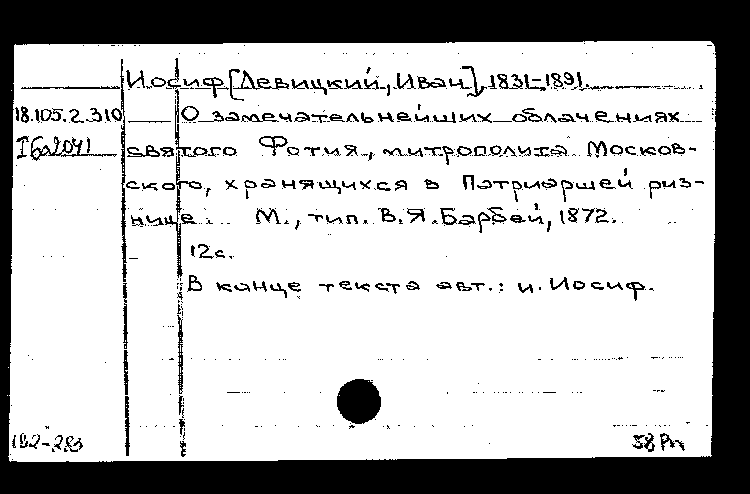 Иосиф [Левицкий, Иван], 1831-1891.
18.105.2.310 О замечательнейших облачениях
святого Фотия, митрополита Москов-
ского, хранящихся в Патриаршей риз-
нице. М., тип. В.Я. Барбей, 1872.
12с.
В конце текста авт.: и. Иосиф.
182-283